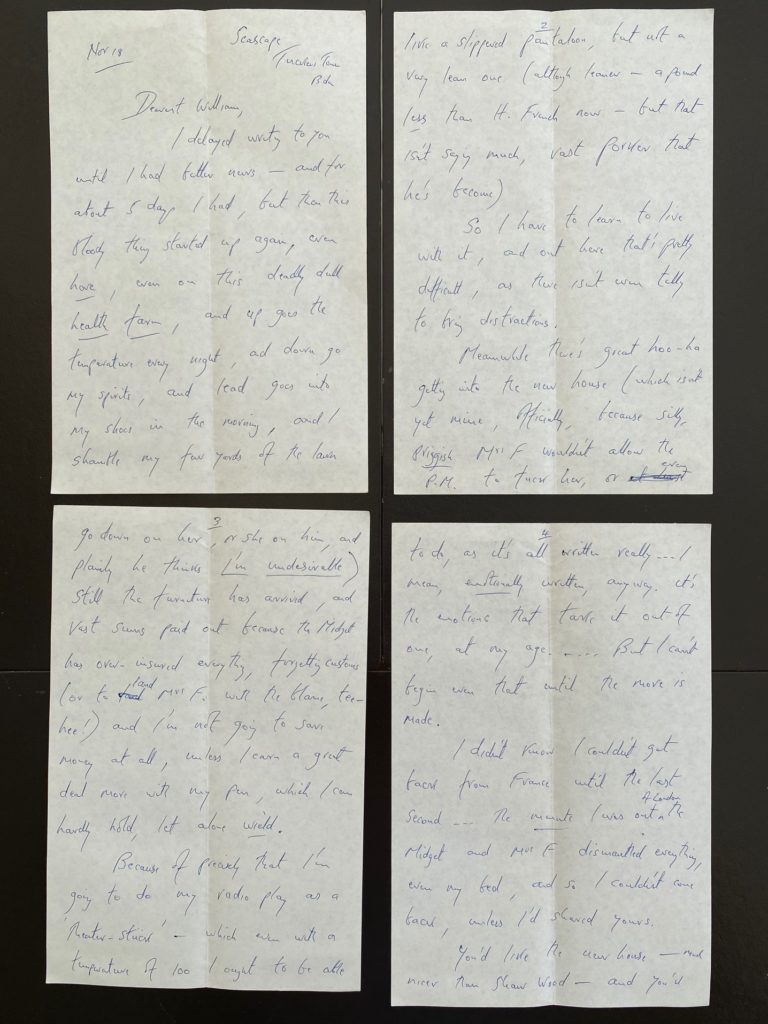 Nov 18
Seascape
Tuckers Town
Bda
Dearest William,
I delayed writing to you
until I had better news – and for
about 5 days I had, but then this
bloody thing started up again, even
here, even on this deadly dull
health farm, and up goes the
temperature every night, and down go
my spirits, and lead goes into
my shoes in the morning, and I
shamble my few yards of the lawn
2
like a slippered pantaloon, but not a
very lean one (although leaner – a pound
less than H. French now – but that
isn't saying much, vast porker that
he's become)
So I have to learn to live
with it, and out here that's pretty
difficult, as there isn't even telly
to bring distractions.
Meanwhile there's great hoo-ha
getting into the new house (which isn't
yet mine, officially, because silly,
priggish Mrs F wouldn't allow the
P.M. to her, or even
3
go down on her, or she on him, and
plainly he thinks I'm undesirable)
Still the furniture has arrived, and
vast sums paid out because the Midget
has over-insured everything, forgetting customs
(or to and Mrs F. with the blame, tee-
hee!) and I'm not going to save
money at all, unless I earn a great
deal more with my pen, which I can
hardly hold, let alone wield.
Because of precisely that I'm
going to do my radio play as a
'Theater-stück' – which even with a
temperature of 100 I ought to be able
4
to do, as it's all written really.... I
mean, emotionally written, anyway. It's
the emotions that take it out of
one, at my age...... But I can't
begin even that until the move is
made.
I didn't know I couldn't get
back from France until the last
second... The minute I was out of London the
Midget and Mrs F dismantled everything,
even my bed, and so I couldn't come
back, unless I'd shared yours.
You'd like the new house – much
nicer than Shaw Wood – and you'd